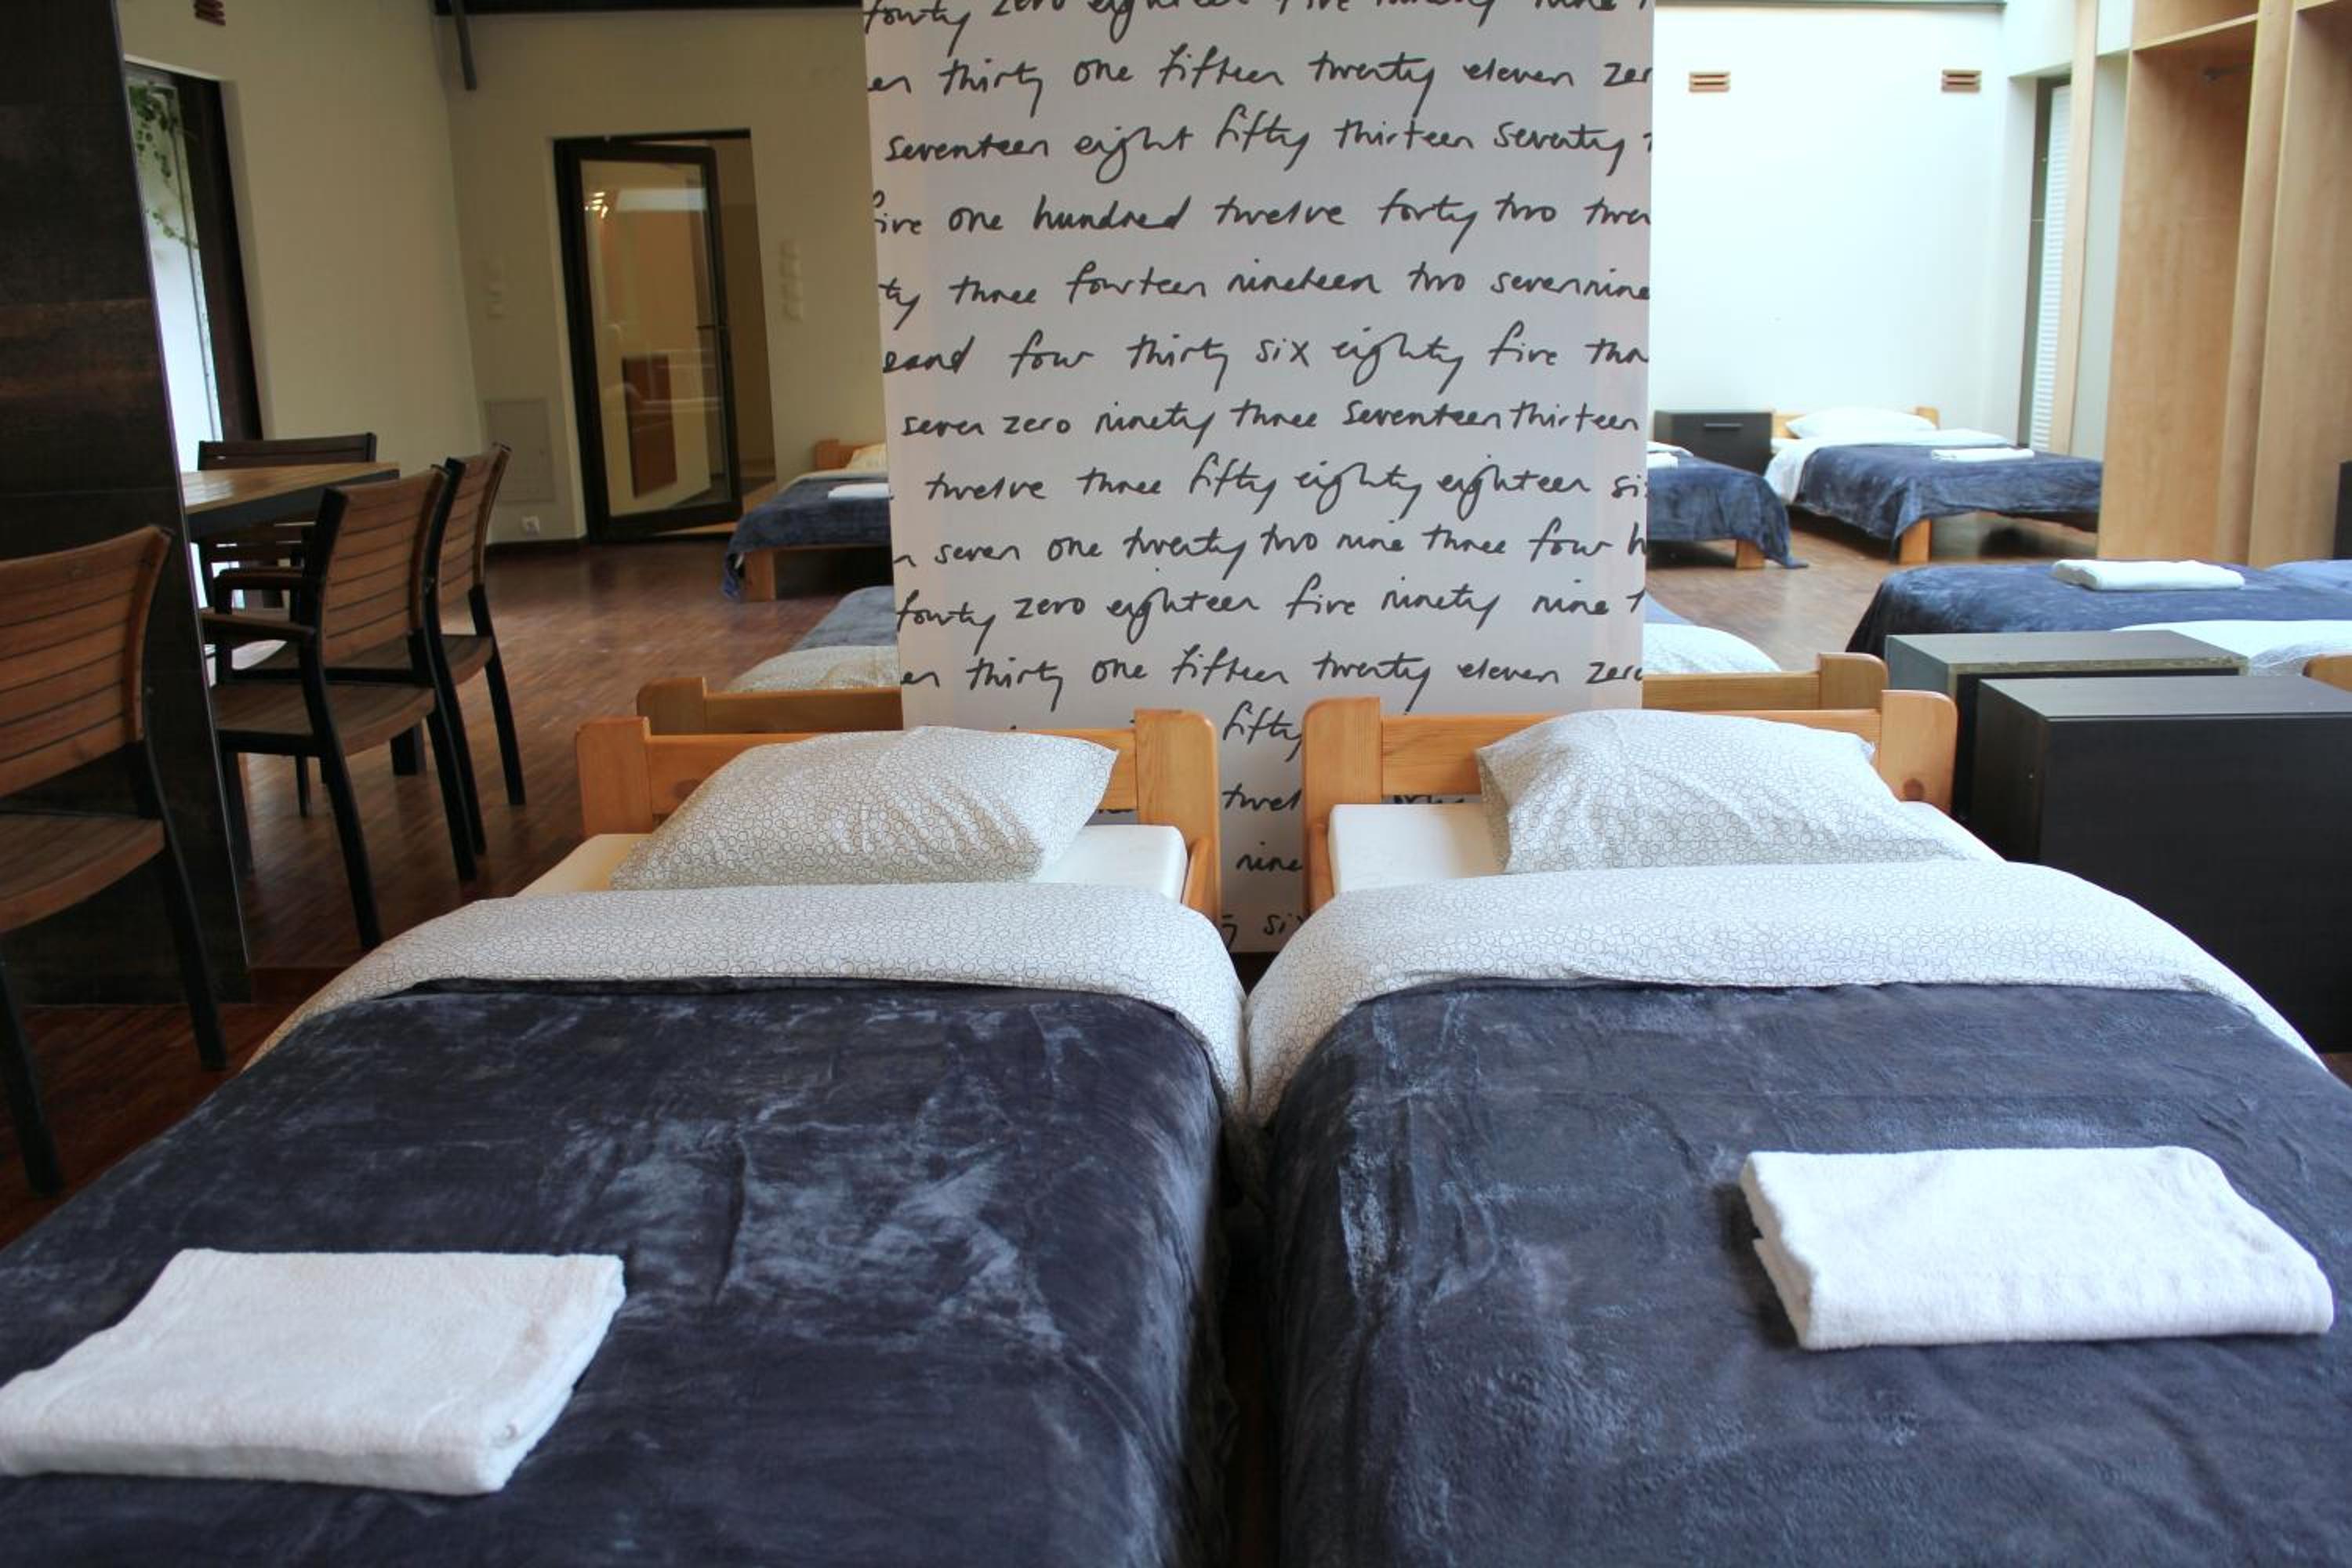 fourty zero eighteen five ninety nine
en thirty one fifteen twenty eleven zer
seventeen eight fifty thirteen seventy
five one hundred twelve forty two twen
ty three fourteen nineteen two seven nine
sand four thirty six eighty five tho
seven zero ninety three seventeen thirteen
twelve three fifty eighty eighteen si
n seven one twenty two nine three four h
fourty zero eighteen five ninety nine t
en thirty one fifteen twenty eleven zero
fifty
twel
nine
six